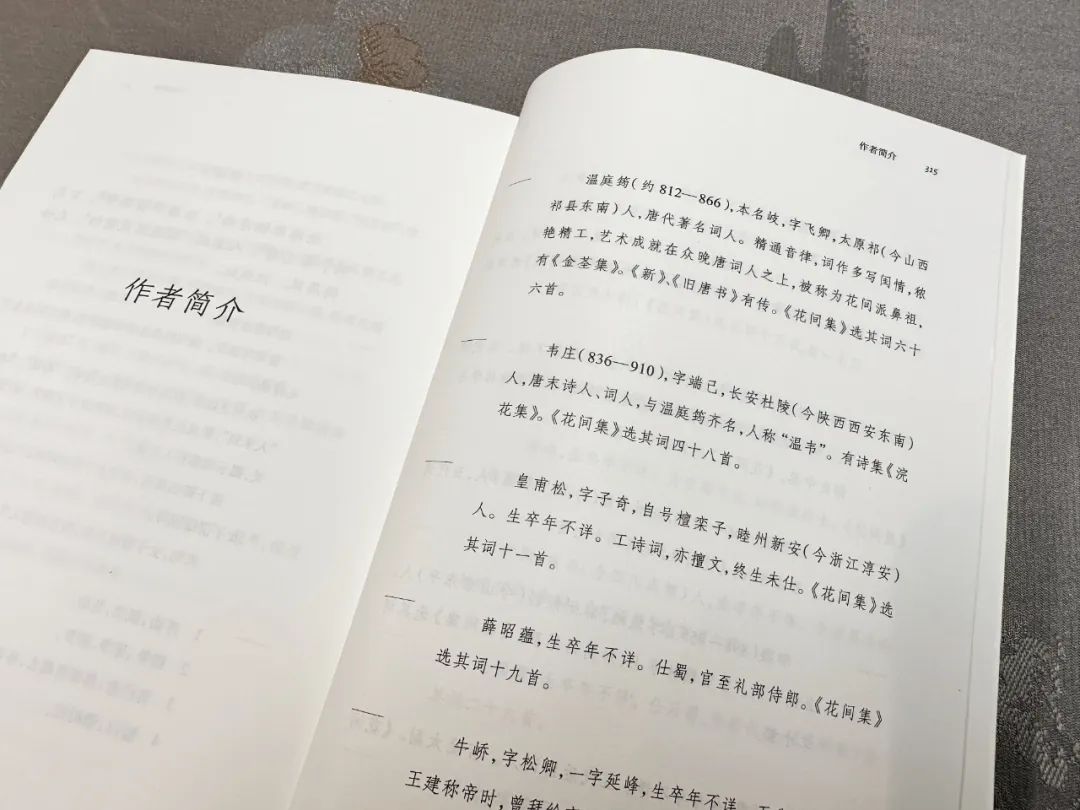 作者简介
作者简介 315
温庭筠(约812—866),本名岐,字飞卿,太原祁(今山西
祁县东南)人,唐代著名词人。精通音律,词作多写闺情,秾
艳精工,艺术成就在众晚唐词人之上,被称为花间派鼻祖,
有《金荃集》。《新》、《旧唐书》有传。《花间集》选其词六十
六首。
韦庄(836—910),字端己,长安杜陵(今陕西西安东南)
人,唐末诗人、词人,与温庭筠齐名,人称“温韦”。有诗集《浣
花集》。《花间集》选其词四十八首。
皇甫松,字子奇,自号檀栾子,睦州新安(今浙江淳安)
人。生卒年不详。工诗词,亦擅文,终生未仕。《花间集》选
其词十一首。
薛昭蕴,生卒年不详。仕蜀,官至礼部侍郎。《花间集》
选其词十九首。
牛峤,字松卿,一字延峰,生卒年不详。
王建称帝时,曾拜给